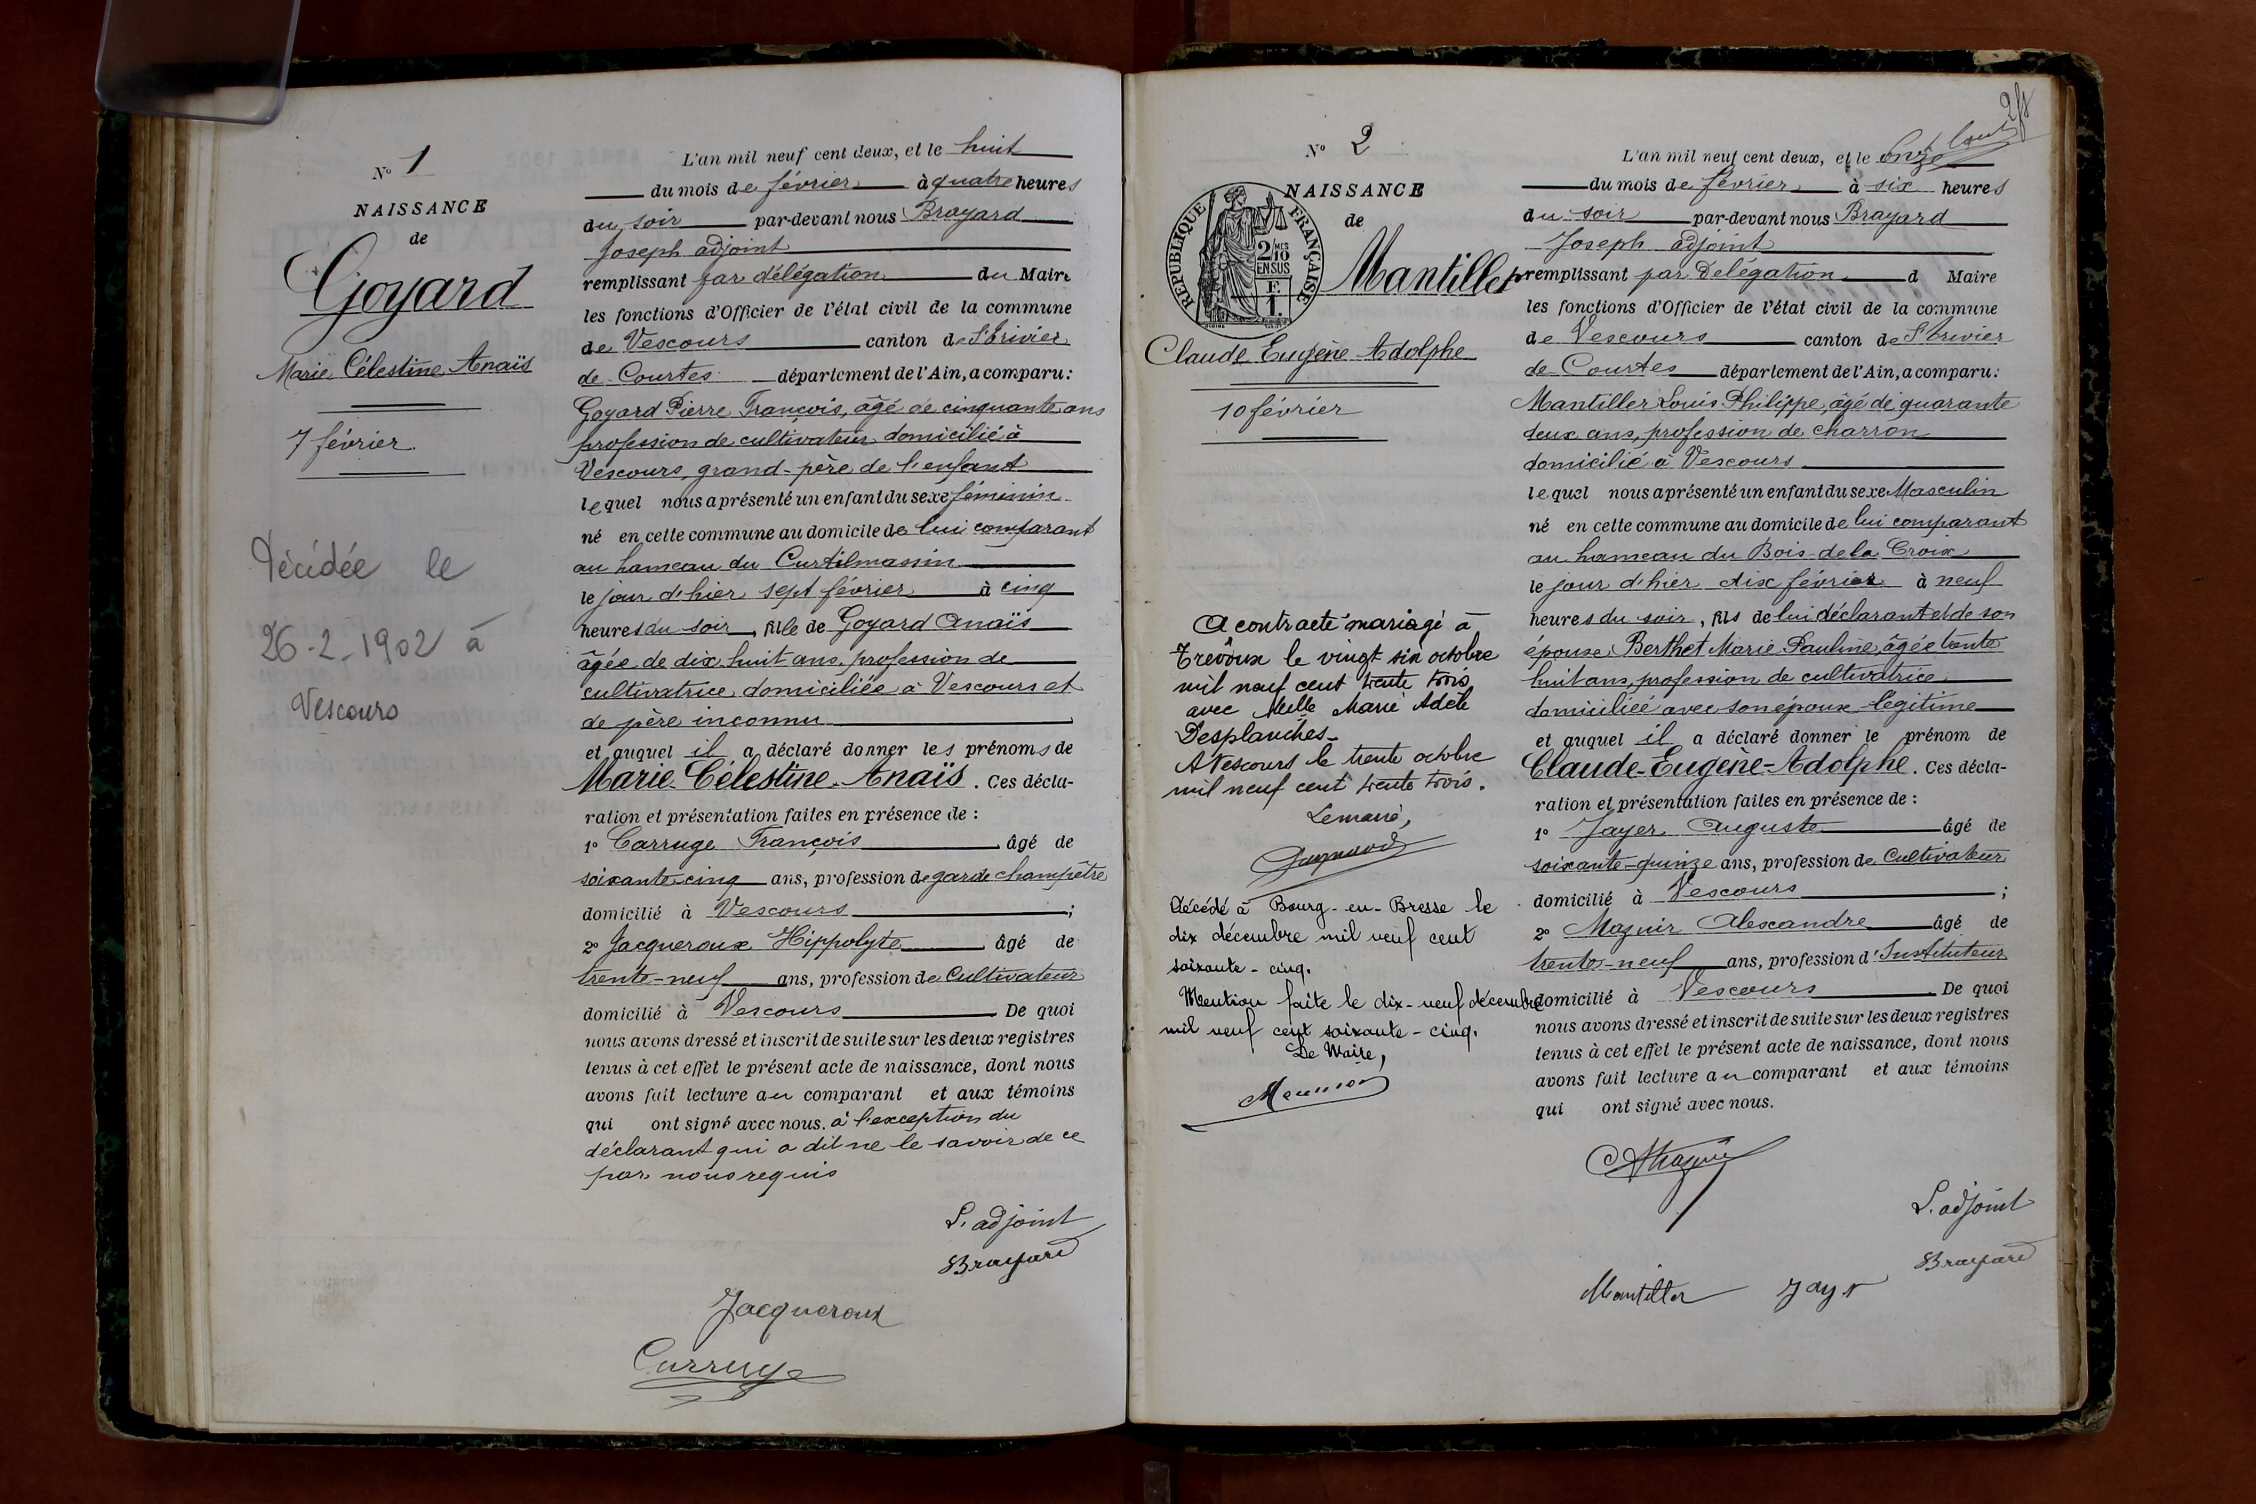 N° 1
NAISSANCE
de
Goyard
Marie Célestine Anaïs
7 février
Décédée le
26-2-1902 à
Vescours
L'an mil neuf cent deux, et le huit
du mois de février à quatre heures
du soir par-devant nous Brayard
Joseph adjoint
remplissant par délégation du Maire
les fonctions d'Officier de l'état civil de la commune
de Vescours canton de St Trivier
de Courtes département de l'Ain, a comparu :
Goyard Pierre François, âgé de cinquante ans
profession de cultivateur domicilié à
Vescours, grand-père de l'enfant
lequel nous a présenté un enfant du sexe féminin
né en cette commune au domicile de lui comparant
au hameau du Curtilmassin
le jour d'hier sept février à cinq
heures du soir, fille de Goyard Anaïs
âgée de dix huit ans, profession de
cultivatrice domiciliée à Vescours et
de père inconnu
et auquel il a déclaré donner les prénoms de
Marie-Célestine-Anaïs. Ces décla-
ration et présentation faites en présence de :
1° Carruge François âgé de
soixante cinq ans, profession de garde champêtre
domicilié à Vescours ;
2° Jacqueroux Hippolyte âgé de
trente-neuf ans, profession de Cultivateur
domicilié à Vescours De quoi
nous avons dressé et inscrit de suite sur les deux registres
tenus à cet effet le présent acte de naissance, dont nous
avons fait lecture au comparant et aux témoins
qui ont signé avec nous. à l'exception du
déclarant qui a dit ne le savoir de ce
par nous requis
L'adjoint
Brayard
Jacqueroux
Carruge
N° 2
NAISSANCE
de
RÉPUBLIQUE FRANÇAISE
2/10
MES
EN SUS
F.
1.
Mantiller
Claude Eugène Adolphe
10 février
A contracté mariage à
Trévoux le vingt six octobre
mil neuf cent trente trois
avec Melle Marie Adèle
Desplanches.
A Vescours le trente octobre
mil neuf cent trente trois.
Le maire,
Décédé à Bourg-en-Bresse le
dix décembre mil neuf cent
soixante-cinq.
Mention faite le dix-neuf décembre
mil neuf cent soixante-cinq.
Le Maire,
L'an mil neuf cent deux, et le onze
du mois de février à six heures
du soir par-devant nous Brayard
Joseph adjoint
remplissant par Délégation d Maire
les fonctions d'Officier de l'état civil de la commune
de Vescours canton de St Trivier
de Courtes département de l'Ain, a comparu :
Mantiller Louis Philippe, âgé de quarante
deux ans, profession de charron
domicilié à Vescours
lequel nous a présenté un enfant du sexe Masculin
né en cette commune au domicile de lui comparant
au hameau du Bois de la Croix
le jour d'hier dix février à neuf
heures du soir, fils de lui déclarant et de son
épouse Berthet Marie Pauline, âgée trente
huit ans, profession de cultivatrice
domiciliée avec son époux légitime
et auquel il a déclaré donner le prénom de
Claude-Eugène-Adolphe. Ces décla-
ration et présentation faites en présence de :
1° Jayer Auguste âgé de
soixante-quinze ans, profession de Cultivateur
domicilié à Vescours ;
2° Magnir Alescandre âgé de
trente-neuf ans, profession d'Instituteur
domicilié à Vescours De quoi
nous avons dressé et inscrit de suite sur les deux registres
tenus à cet effet le présent acte de naissance, dont nous
avons fait lecture au comparant et aux témoins
qui ont signé avec nous.
L'adjoint
Brayard
Mantiller Jayr